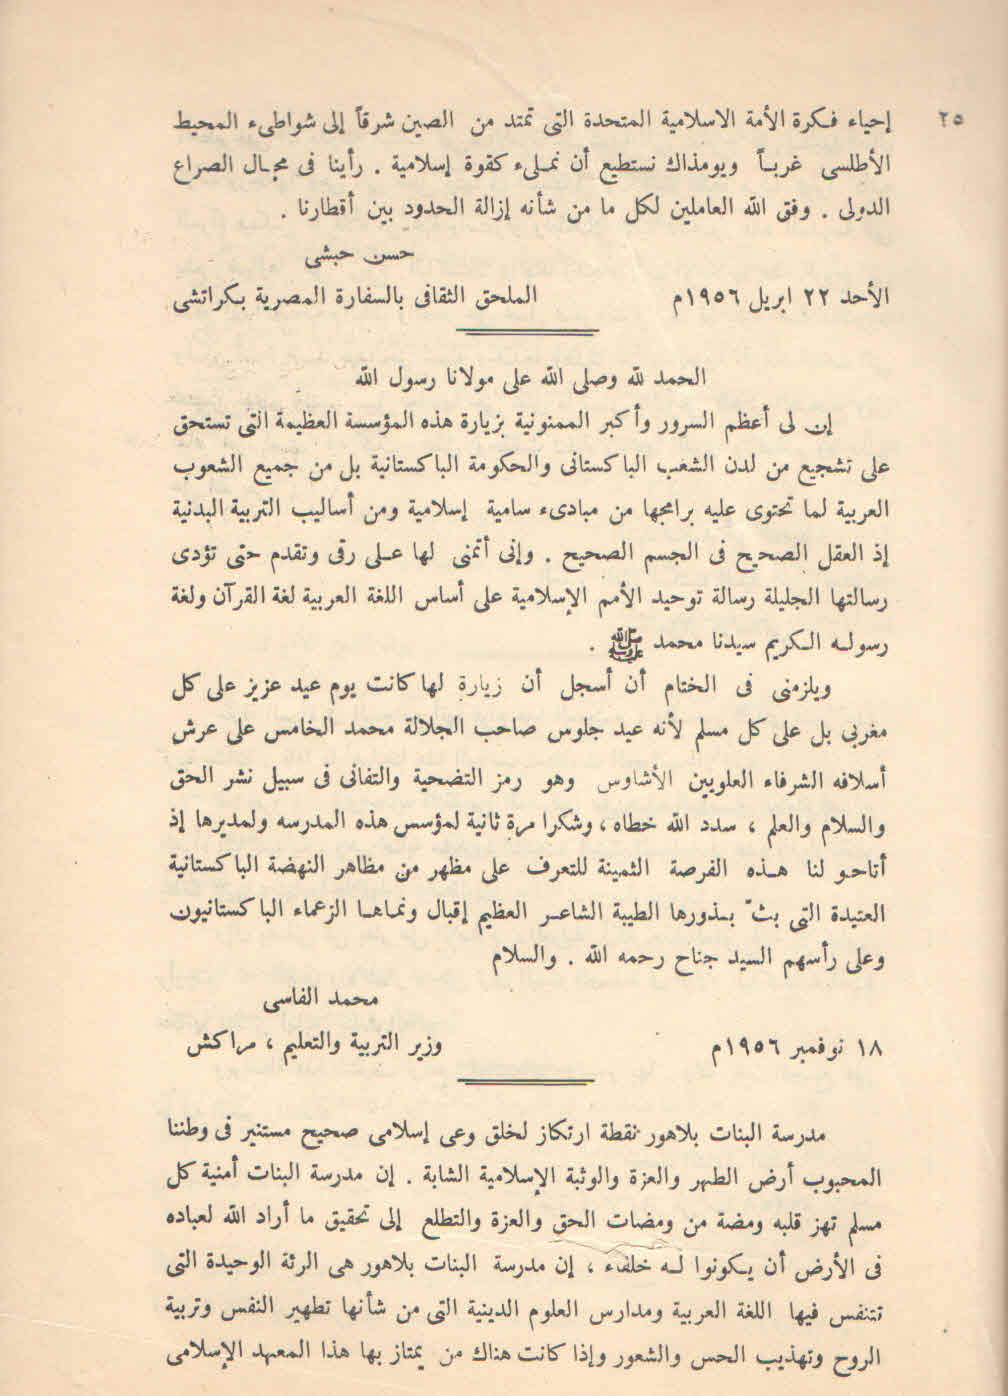 ٢٥
إحياء فكرة الأمة الاسلامية المتحدة التى تمتد من الصين شرقاً إلى شواطىء المحيط
الأطلسى غرباً ويومذاك نستطيع أن نملىء كقوة إسلامية . رأينا فى مجال الصراع
الدولى . وفق الله العاملين لكل ما من شأنه إزالة الحدود بين أقطارنا .
حسن حبشى
الأحد ٢٢ ابريل ١٩٥٦م الملحق الثقافى بالسفارة المصرية بكراتشى
الحمد لله وصلى الله على مولانا رسول الله
إن لى أعظم السرور وأكبر الممنونية بزيارة هذه المؤسسة العظيمة التى تستحق
على تشجيع من لدن الشعب الباكستانى والحكومة الباكستانية بل من جميع الشعوب
العربية لما تحتوى عليه برامجها من مبادىء سامية إسلامية ومن أساليب التربية البدنية
إذ العقل الصحيح فى الجسم الصحيح . وإنى أتمنى لها على رقى وتقدم حتى تؤدى
رسالتها الجليلة رسالة توحيد الأمم الإسلامية على أساس اللغة العربية لغة القرآن ولغة
رسوله الكريم سيدنا محمد ﷺ .
ويلزمنى فى الختام أن أسجل أن زيارة لها كانت يوم عيد عزيز على كل
مغربى بل على كل مسلم لأنه عيد جلوس صاحب الجلالة محمد الخامس على عرش
أسلافه الشرفاء العلويين الأشاوس وهو رمز التضحية والتفانى فى سبيل نشر الحق
والسلام والعلم ، سدد الله خطاه ، وشكرا مرة ثانية لمؤسس هذه المدرسه ولمديرها إذ
أتاحو لنا هذه الفرصة الثمينة للتعرف على مظهر من مظاهر النهضة الباكستانية
العتيدة التى بثّ بذورها الطيبة الشاعر العظيم إقبال ونماها الزعماء الباكستانيون
وعلى رأسهم السيد جناح رحمه الله . والسلام
محمد الفاسى
١٨ نوفمبر ١٩٥٦م وزير التربية والتعليم ، مراكش
مدرسة البنات بلاهور نقطة ارتكاز لخلق وعى إسلامى صحيح مستنير فى وطننا
المحبوب أرض الطهر والعزة والوثبة الإسلامية الشابة . إن مدرسة البنات أمنية كل
مسلم تهز قلبه ومضة من ومضات الحق والعزة والتطلع إلى تحقيق ما أراد الله لعباده
فى الأرض أن يكونوا له خلفاء ، إن مدرسة البنات بلاهور هى الرئة الوحيدة التى
تتنفس فيها اللغة العربية ومدارس العلوم الدينية التى من شأنها تطهير النفس وتربية
الروح وتهذيب الحس والشعور وإذا كانت هناك من يمتاز بها هذا المعهد الإسلامى